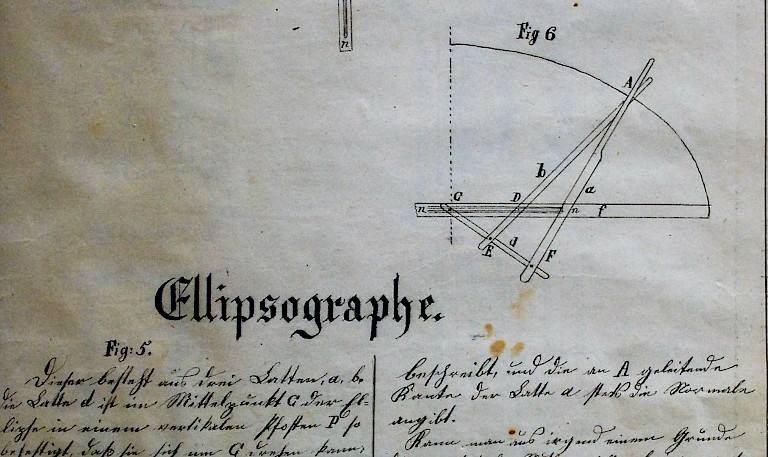 n
Fig 6
A
b
a
n G D n f
E d F
Ellipsographe.
Fig: 5.
Dieser besteht aus drei Latten, a, b.
die Latte d ist im Mittelpunkt C der El-
lipse in einem vertikalen Pfosten P so
befestigt, daß sie sich um C drehen kann,
beschreibt, und die an A geleitende
Kante der Latte a stets die Normale
angibt.
Kann man aus irgend einem Grunde